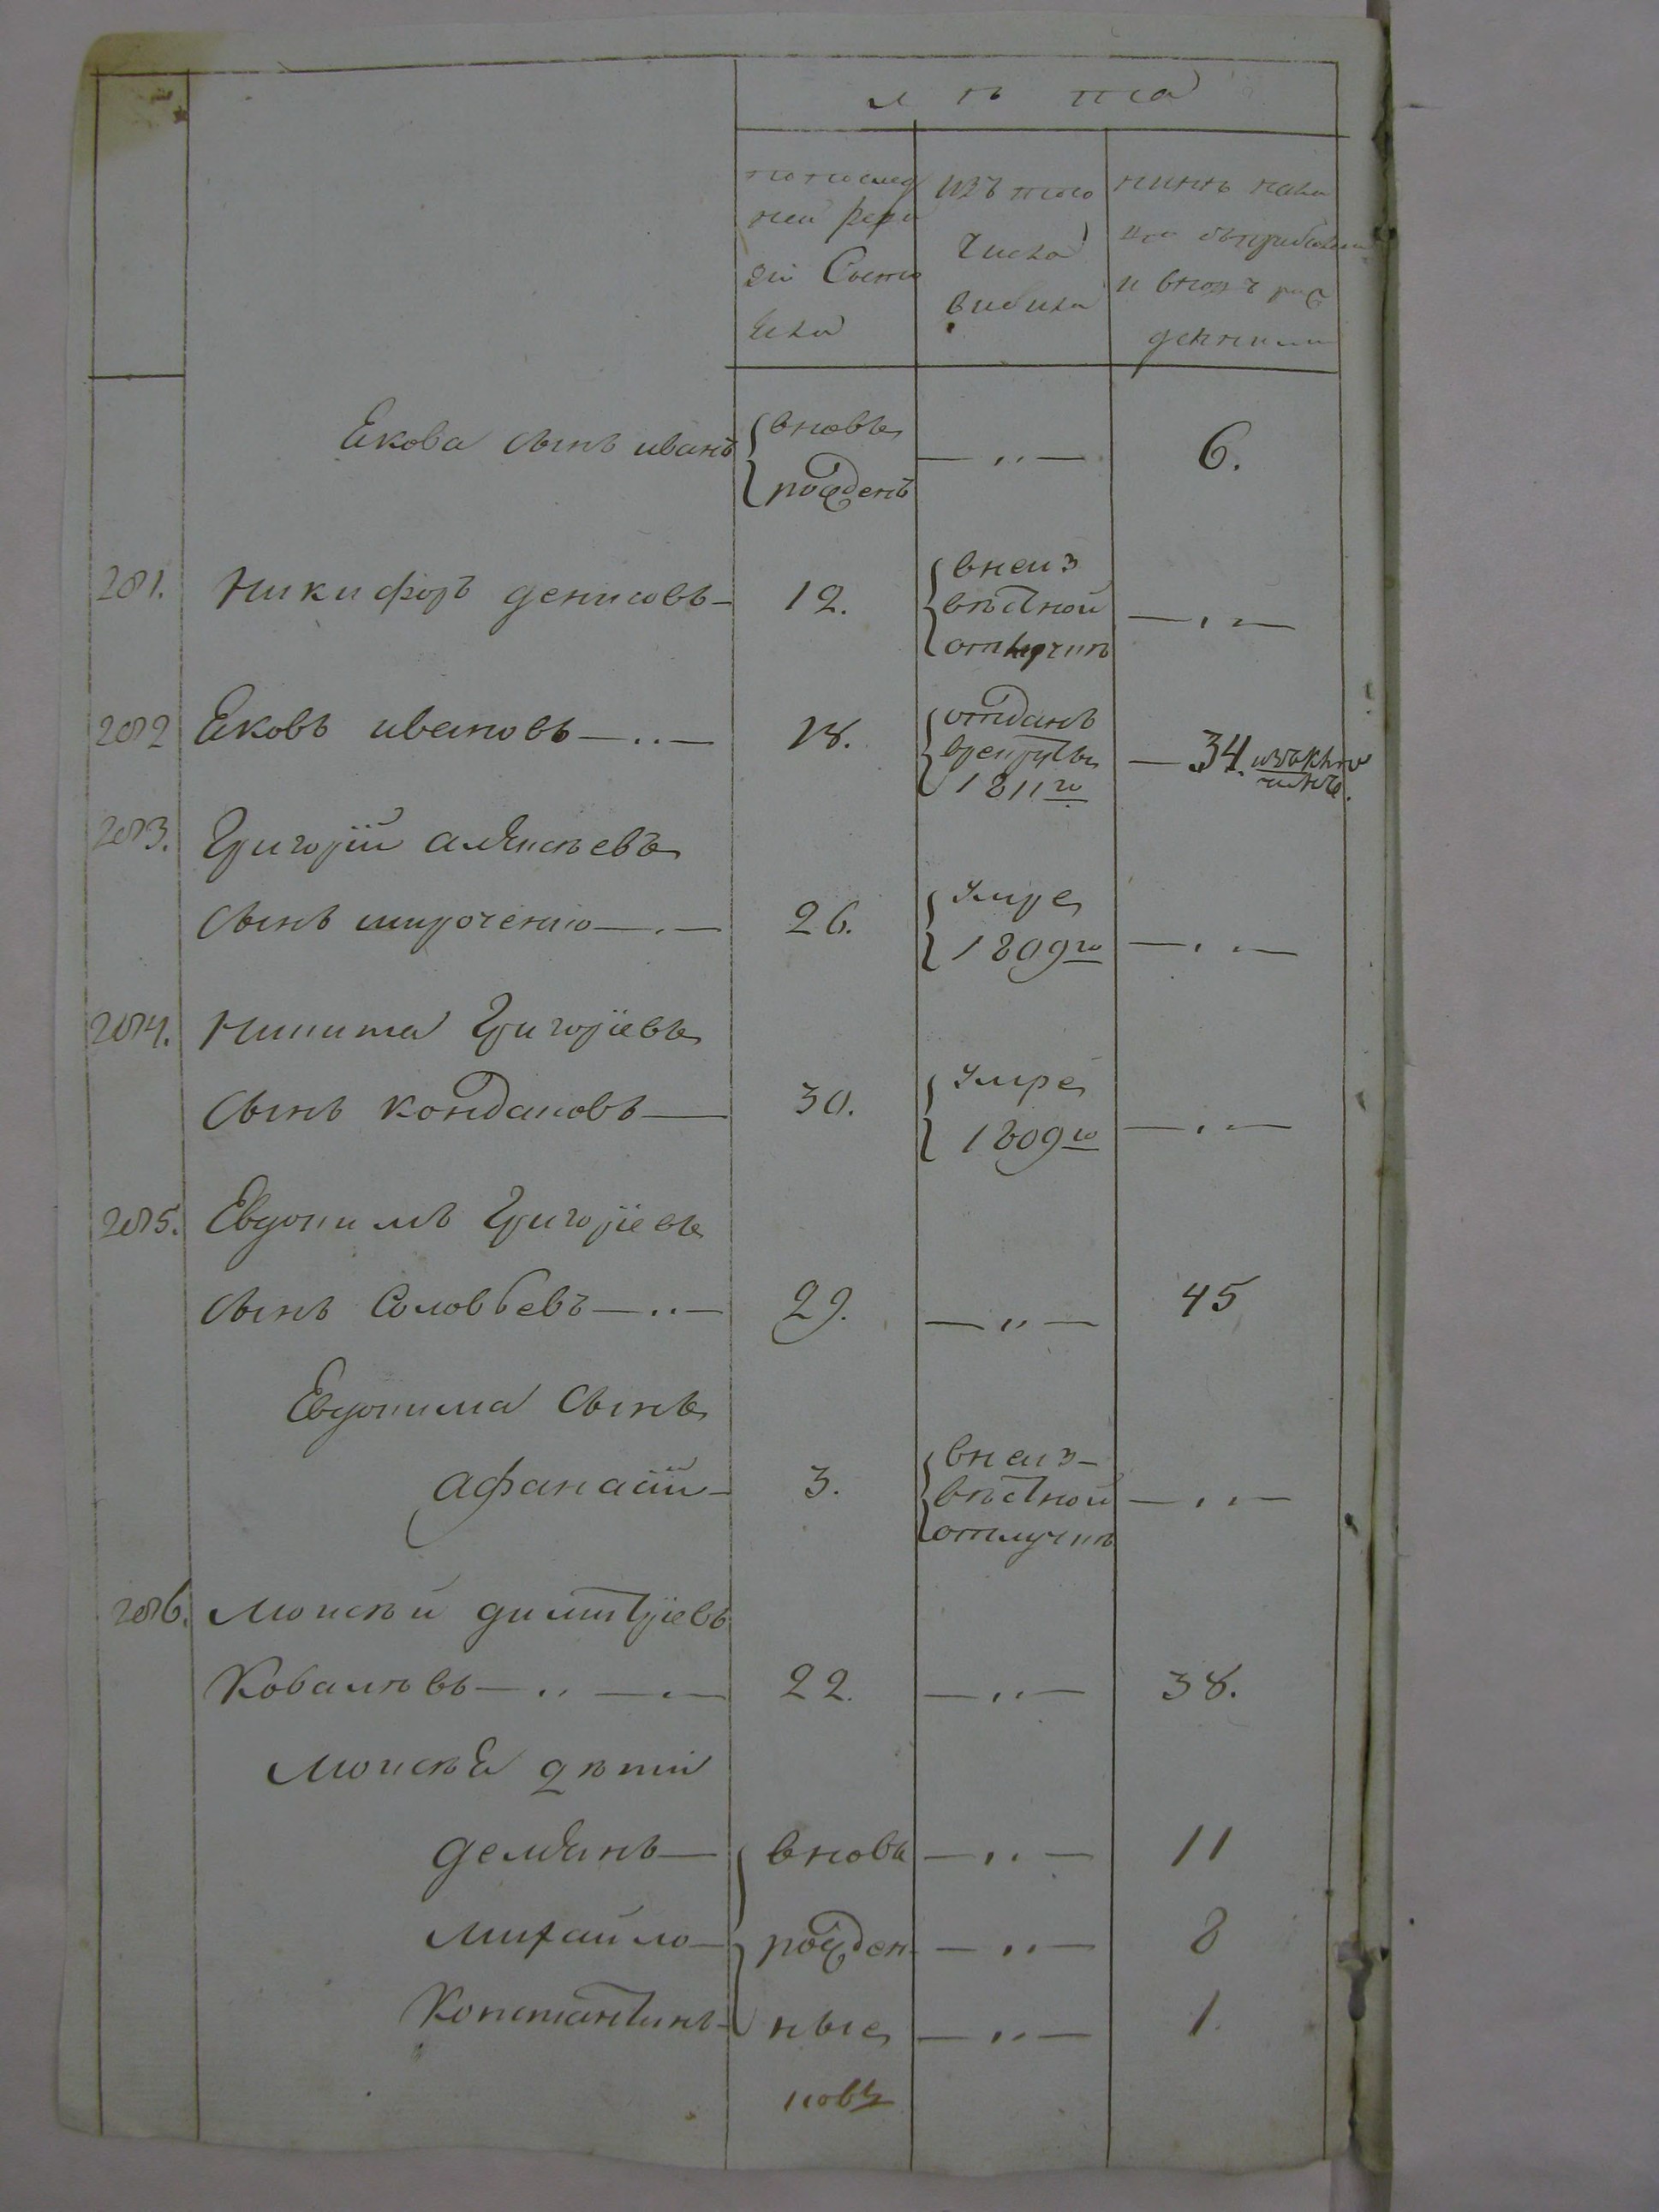 лѣта
по послед
ней реви
зіи Состо
Ехла
изъ того
числа
выбыло
нынѣ
и вновь рож
денными
Екова сынъ иванъ вновь рожденъ —„— 6.
281. Никифоръ денисовъ 12. внеиз
вѣстной
отлучкѣ —„—
282 Ековъ ивановъ —..— 18. отданъ
врекруты
1811го — 34.
283. Григорій алексѣевъ
сынъ —.— 26. умре
1809го —„—
284. Никита Григорѣевъ
сынъ кондаковъ — 30. умре
1809го —„—
285. Евдокимъ Григорѣевъ
сынъ Соловьевъ —..— 29. —„— 45
Евдокима сынъ
афанасій 3. внеиз-
вѣстной
отлучкѣ —„—
286. Моисѣй димитріевъ
Ковалѣвъ —..— 22. —„— 38.
Моисѣя дѣти
демьянъ — вновь —„— 11
михайло — рожден- —„— 8
Константинъ — ные —„— 1